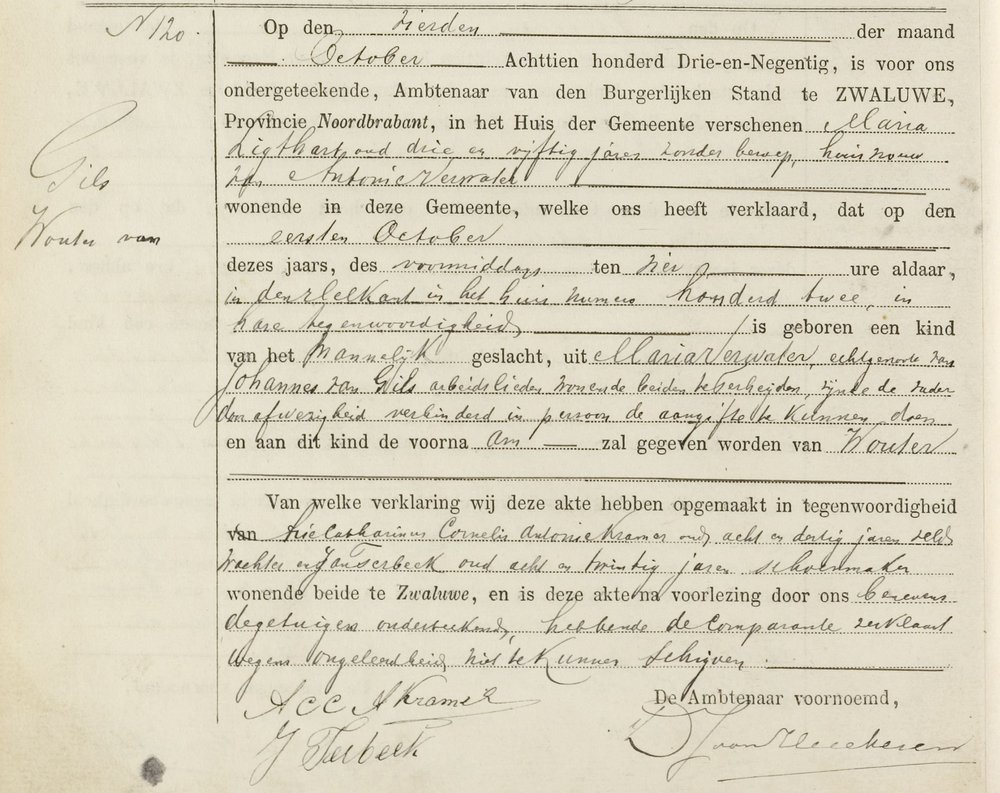 N 120.
Gils
Wouter van
Op den vierden der maand
October Achttien honderd Drie-en-Negentig, is voor ons
ondergeteekende, Ambtenaar van den Burgerlijken Stand te ZWALUWE,
Provincie Noordbrabant, in het Huis der Gemeente verschenen Maria
Ligthart oud drie en vijftig jaren zonder beroep, huisvrouw
van Antonie Verwater
wonende in deze Gemeente, welke ons heeft verklaard, dat op den
eersten October
dezes jaars, des voormiddags ten vier ure aldaar,
in den Helkant in het huis numero honderd twee, in
hare tegenwoordigheid is geboren een kind
van het Mannelijk geslacht, uit Maria Verwater, echtgenoote van
Johannes van Gils arbeidslieden wonende beiden te Terheijden, zijnde de vader
door afwezigheid verhinderd in persoon de aangifte te kunnen doen
en aan dit kind de voorna am zal gegeven worden van Wouter
Van welke verklaring wij deze akte hebben opgemaakt in tegenwoordigheid
van Arie Catharinus Cornelis Antonie Kramer oud acht en dertig jaren veld
wachter en Jan Terbeek oud acht en twintig jaren schoenmaker
wonende beide te Zwaluwe, en is deze akte na voorlezing door ons benevens
de getuigen onderteekend, hebbende de Comparante verklaart
wegens ongeleerdheid niet te kunnen schrijven.
De Ambtenaar voornoemd,
A C C A Kramer
J Terbeek